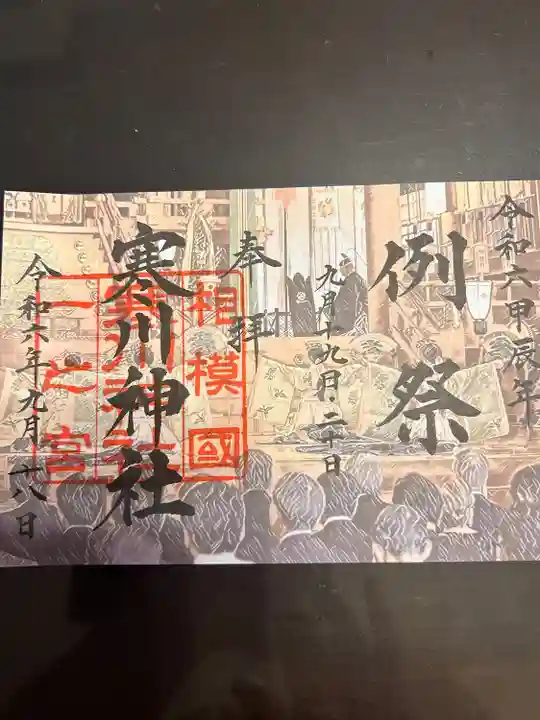 令和六甲辰年
例祭
九月十九日・二十日
奉拝
寒川神社
令和六年九月十八日
相模國
寒川神社
一之宮